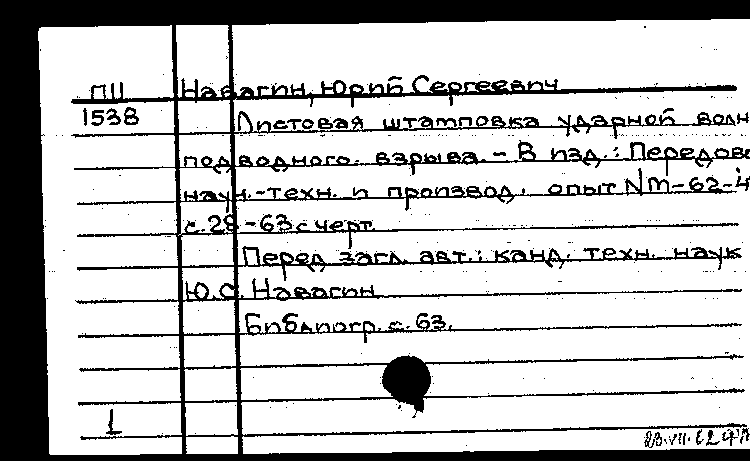 ПII Навагин, Юрий Сергеевич
1538 Листовая штамповка ударной волн
подводного взрыва. - В изд.: Передово
научн.-техн. и производ. опыт № М-62-4
с. 28-63 с черт.
Перед загл. авт.: канд. техн. наук
Ю.С. Навагин
Библиогр. с. 63.
1